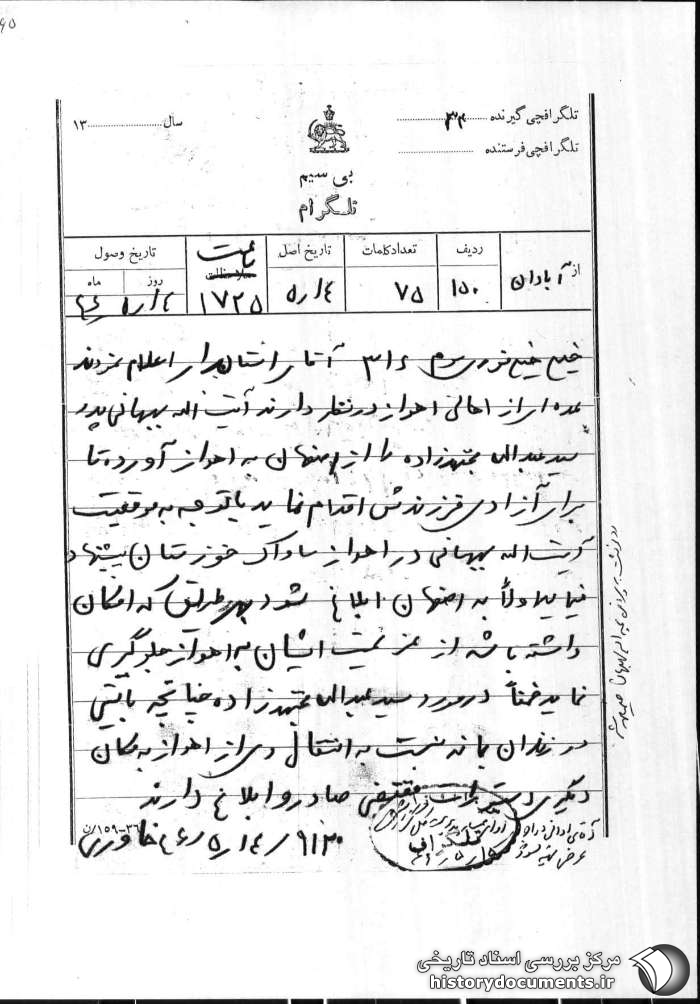 ۶۵
تلگرافچی گیرنده ۳۲
سال ۱۳
تلگرافچی فرستنده
بی سیم
تلگرام
از آبادان
ردیف ۱۵۰
تعداد کلمات ۷۵
تاریخ اصل ۵٫۱۴
ساعت ۱۷۲۵
تاریخ وصول
روز ماه
خیلی خیلی فوری آقای استاندار اعلام نمودند
عده ای از اهالی اهواز در نظر دارند آیت اله بهبهانی پدر
سید عبداله مجتهدزاده را از اصفهان به اهواز آورده تا
برای آزادی فرزندش اقدام نماید با توجه به موقعیت
آیت اله بهبهانی در اهواز ساواک خوزستان پیشنهاد
نماید اولاً به اصفهان ابلاغ شود بهر طریق که امکان
داشته باشد از عزیمت ایشان به اهواز جلوگیری
نماید ضمناً در مورد سید عبداله مجتهدزاده چنانچه بایستی
در زندان بماند نسبت به انتقال وی از اهواز به مکان
دیگری دستورات مقتضی صادر و ابلاغ دارند
تلگراف
مرکز بررسی اسناد تاریخی
historydocuments.ir